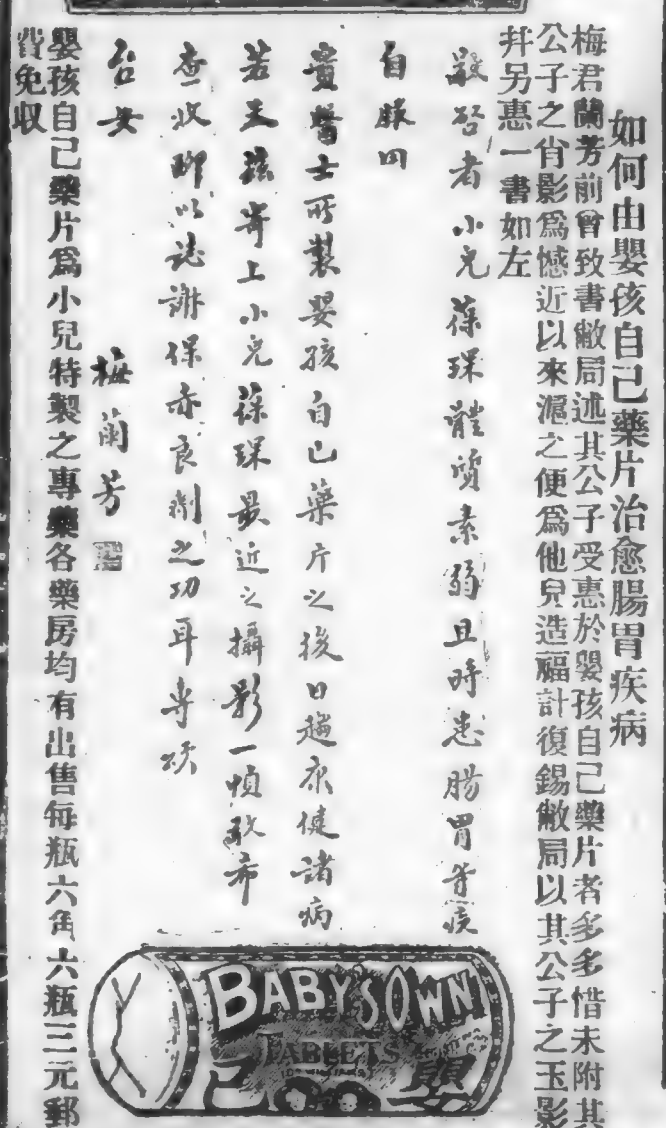 如何由嬰孩自己藥片治愈腸胃疾病
梅君蘭芳前曾致書敝局述其公子受惠於嬰孩自己藥片者多多惜未附其
公子之肖影爲憾近以來滬之便爲他兒造福計復錫敝局以其公子之玉影
幷另惠一書如左
敬啓者小兒葆琛體質素弱且時患腸胃等疾
自服用
貴醫士所製嬰孩自己藥片之後日趨康健諸病
若失茲寄上小兒葆琛最近之攝影一幀敬希
查收聊以誌謝保赤良劑之功耳專頌
台安
梅蘭芳
嬰孩自己藥片爲小兒特製之專藥各藥房均有出售每瓶六角六瓶三元郵
費免收
BABY'S OWN
TABLETS
嬰
己